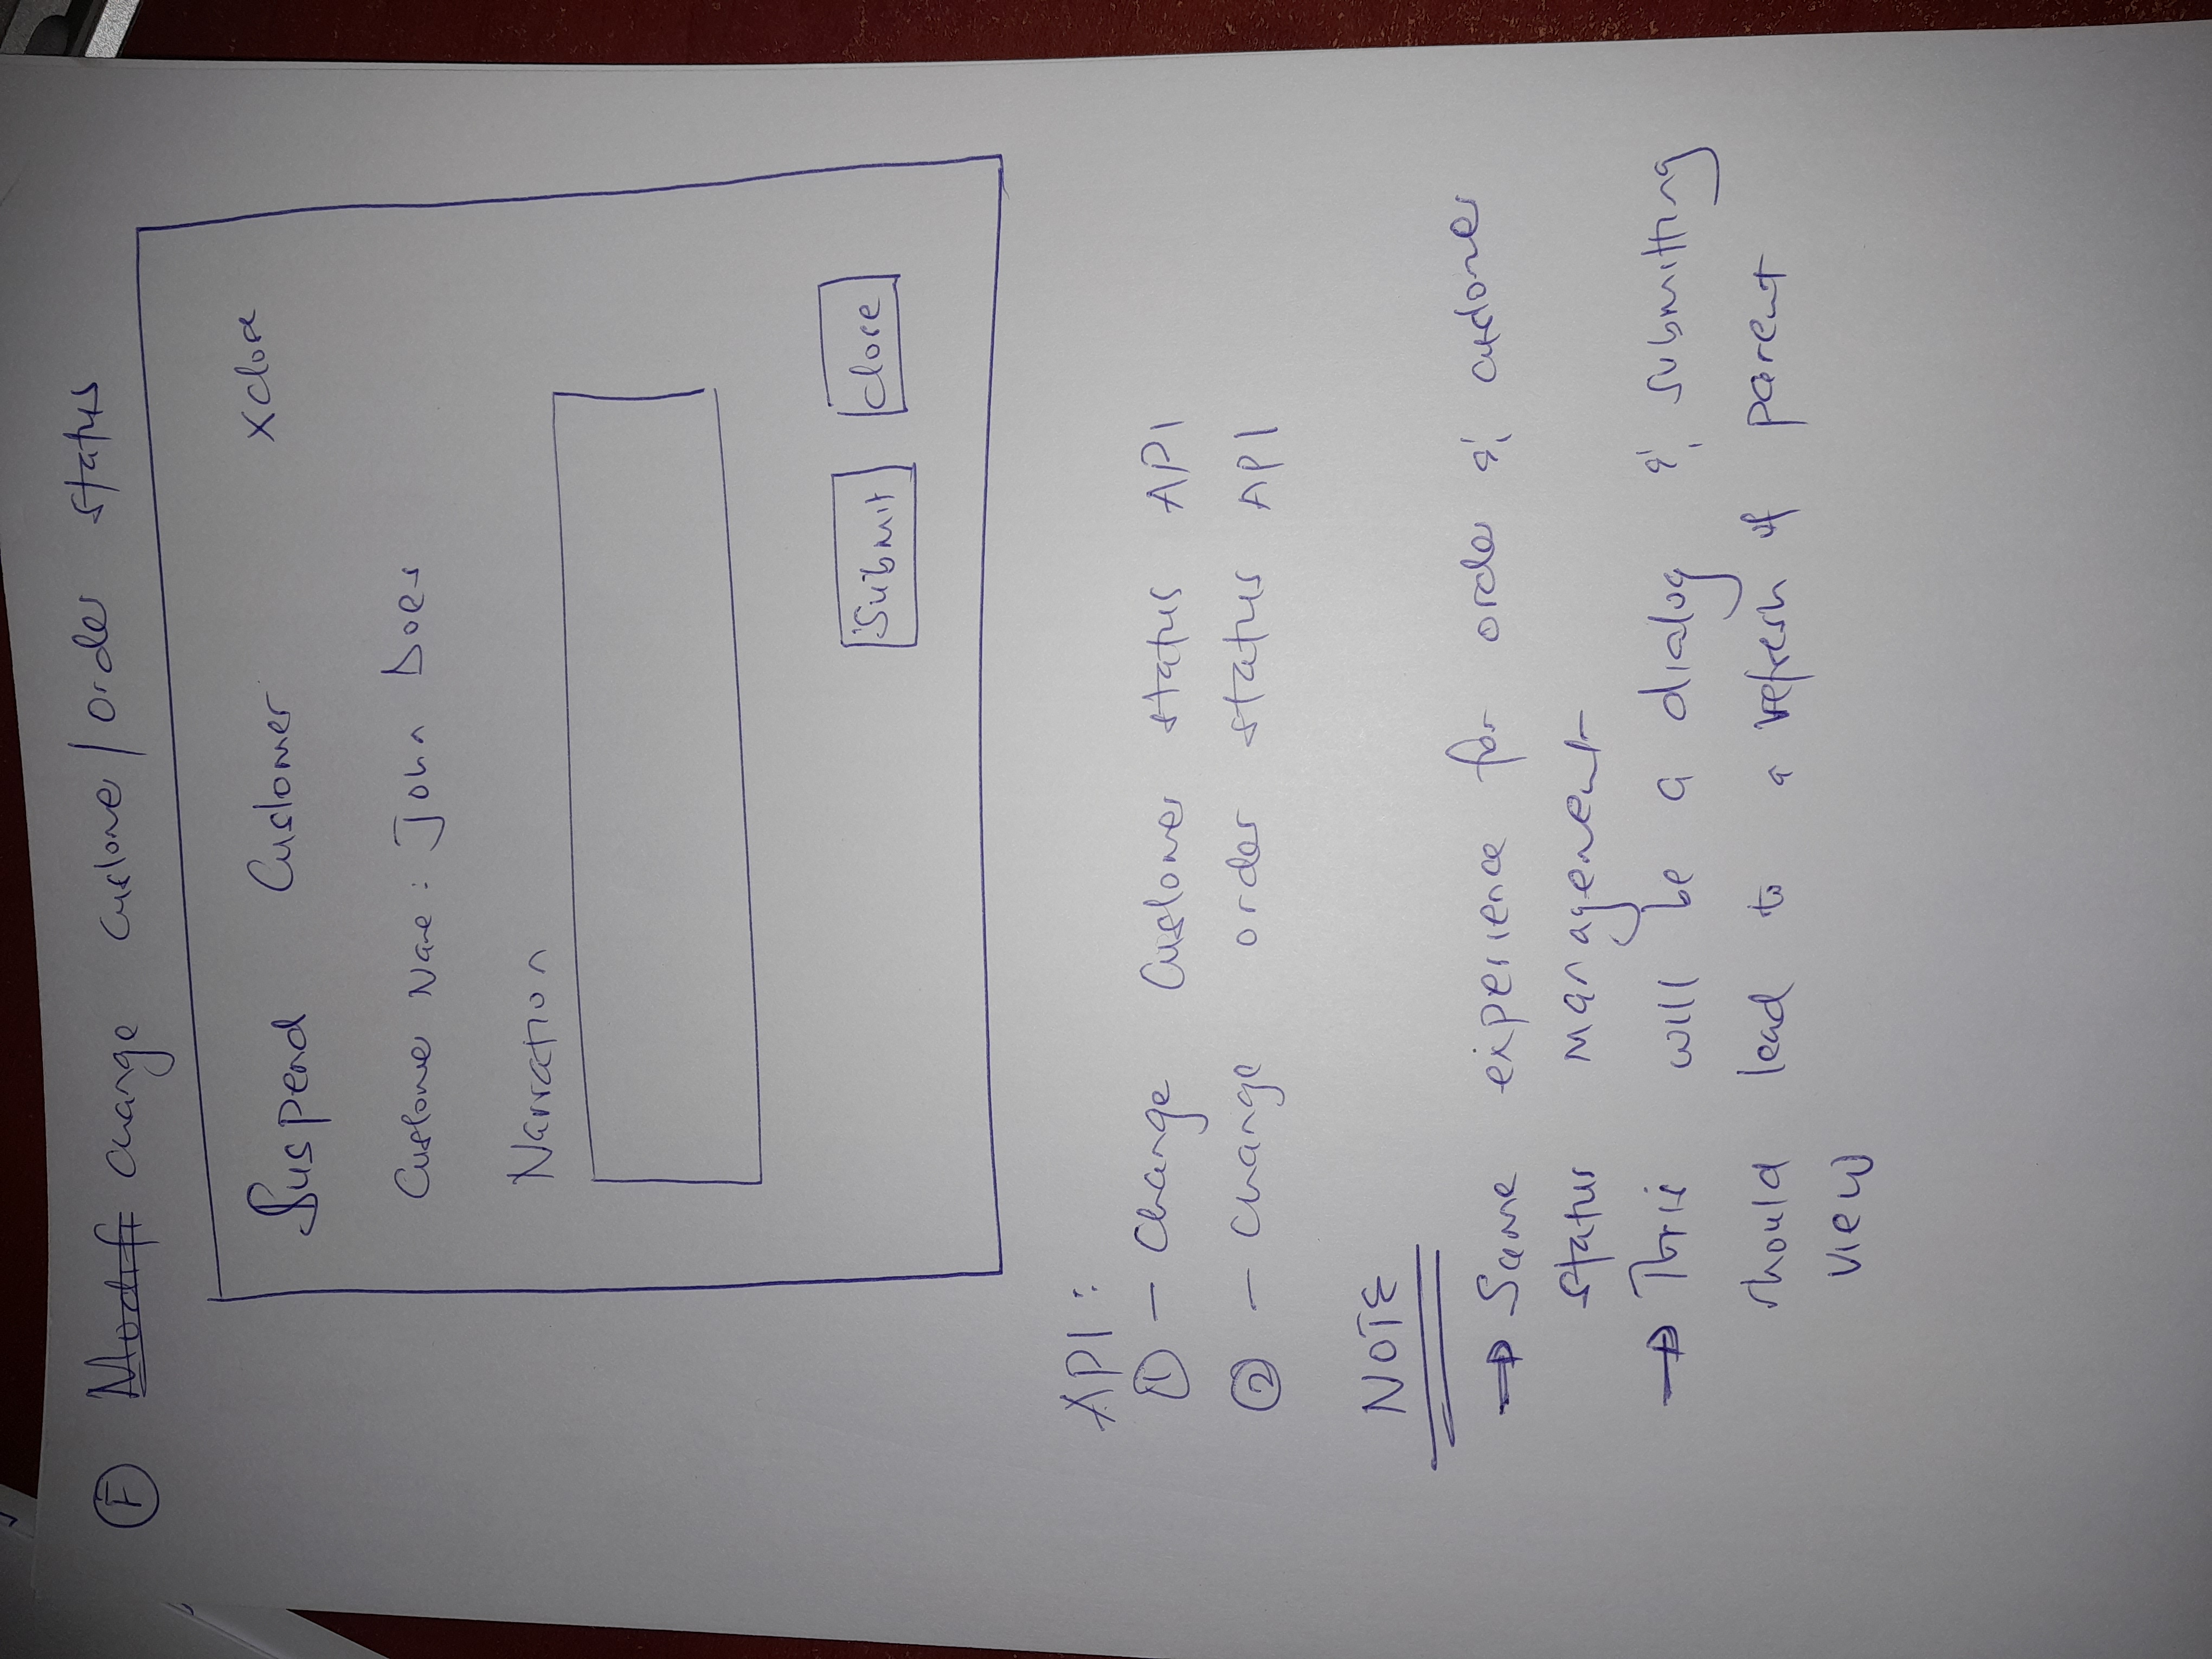 F Modifi Change Customer/Order status
Suspend Customer X close
Customer Name: John Does
Narration
Submit close
API:
1 - Change Customer status API
2 - Change order status API
NOTE
→ Same experience for order & customer
status management
→ This will be a dialog & submitting
should lead to a refresh of parent
view